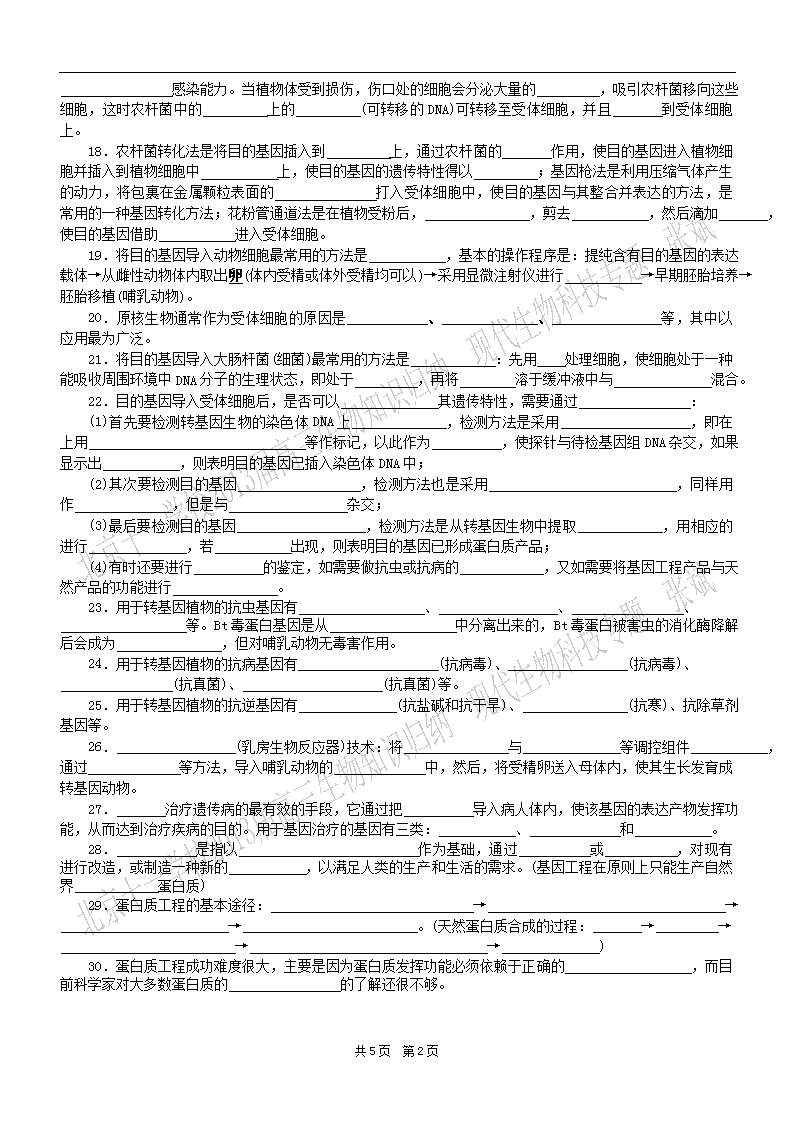 ____________感染能力。当植物体受到损伤，伤口处的细胞会分泌大量的________，吸引农杆菌移向这些
细胞，这时农杆菌中的________上的________(可转移的DNA)可转移至受体细胞，并且______到受体细胞
上。
18．农杆菌转化法是将目的基因插入到________上，通过农杆菌的______作用，使目的基因进入植物细
胞并插入到植物细胞中__________上，使目的基因的遗传特性得以________；基因枪法是利用压缩气体产生
的动力，将包裹在金属颗粒表面的____________打入受体细胞中，使目的基因与其整合并表达的方法，是
常用的一种基因转化方法；花粉管通道法是在植物受粉后，____________，剪去__________，然后滴加______，
使目的基因借助__________进入受体细胞。
19．将目的基因导入动物细胞最常用的方法是__________，基本的操作程序是：提纯含有目的基因的表达
载体→从雌性动物体内取出卵(体内受精或体外受精均可以)→采用显微注射仪进行__________→早期胚胎培养→
胚胎移植(哺乳动物)。
20．原核生物通常作为受体细胞的原因是__________、____________、______________等，其中以
应用最为广泛。
21．将目的基因导入大肠杆菌(细菌)最常用的方法是__________：先用____处理细胞，使细胞处于一种
能吸收周围环境中DNA分子的生理状态，即处于________，再将_______溶于缓冲液中与____________混合。
22．目的基因导入受体细胞后，是否可以____________其遗传特性，需要通过______________：
(1)首先要检测转基因生物的染色体DNA上____________，检测方法是采用________________，即在
上用__________________________等作标记，以此作为_________，使探针与待检基因组DNA杂交，如果
显示出__________，则表明目的基因已插入染色体DNA中；
(2)其次要检测目的基因________________，检测方法也是采用________________________，同样用
作____________，但是与______________杂交；
(3)最后要检测目的基因________________，检测方法是从转基因生物中提取__________，用相应的
进行____________，若__________出现，则表明目的基因已形成蛋白质产品；
(4)有时还要进行_________的鉴定，如需要做抗虫或抗病的__________，又如需要将基因工程产品与天
然产品的功能进行____________。
23．用于转基因植物的抗虫基因有________________、______________、______________、
________________等。Bt毒蛋白基因是从________________中分离出来的，Bt毒蛋白被害虫的消化酶降解
后会成为____________，但对哺乳动物无毒害作用。
24．用于转基因植物的抗病基因有__________________(抗病毒)、______________(抗病毒)、
______________(抗真菌)、__________________(抗真菌)等。
25．用于转基因植物的抗逆基因有____________(抗盐碱和抗干旱)、____________(抗寒)、抗除草剂
基因等。
26．______________(乳房生物反应器)技术：将____________与____________等调控组件__________，
通过____________等方法，导入哺乳动物的____________中，然后，将受精卵送入母体内，使其生长发育成
转基因动物。
27．______治疗遗传病的最有效的手段，它通过把_________导入病人体内，使该基因的表达产物发挥功
能，从而达到治疗疾病的目的。用于基因治疗的基因有三类：__________、____________和__________。
28．__________是指以______________________作为基础，通过_________或_________，对现有
进行改造，或制造一种新的__________，以满足人类的生产和生活的需求。(基因工程在原则上只能生产自然
界__________蛋白质)
29．蛋白质工程的基本途径：__________________________→______________________________→
______________________→______________________。(天然蛋白质合成的过程：______→________→
______________________→______________________________→____________)
30．蛋白质工程成功难度很大，主要是因为蛋白质发挥功能必须依赖于正确的________________，而目
前科学家对大多数蛋白质的______________的了解还很不够。
北京十一学校2013届高三生物知识归纳 现代生物科技专题 张斌
北京十一学校2013届高三生物知识归纳 现代生物科技专题 张斌
共5页 第2页